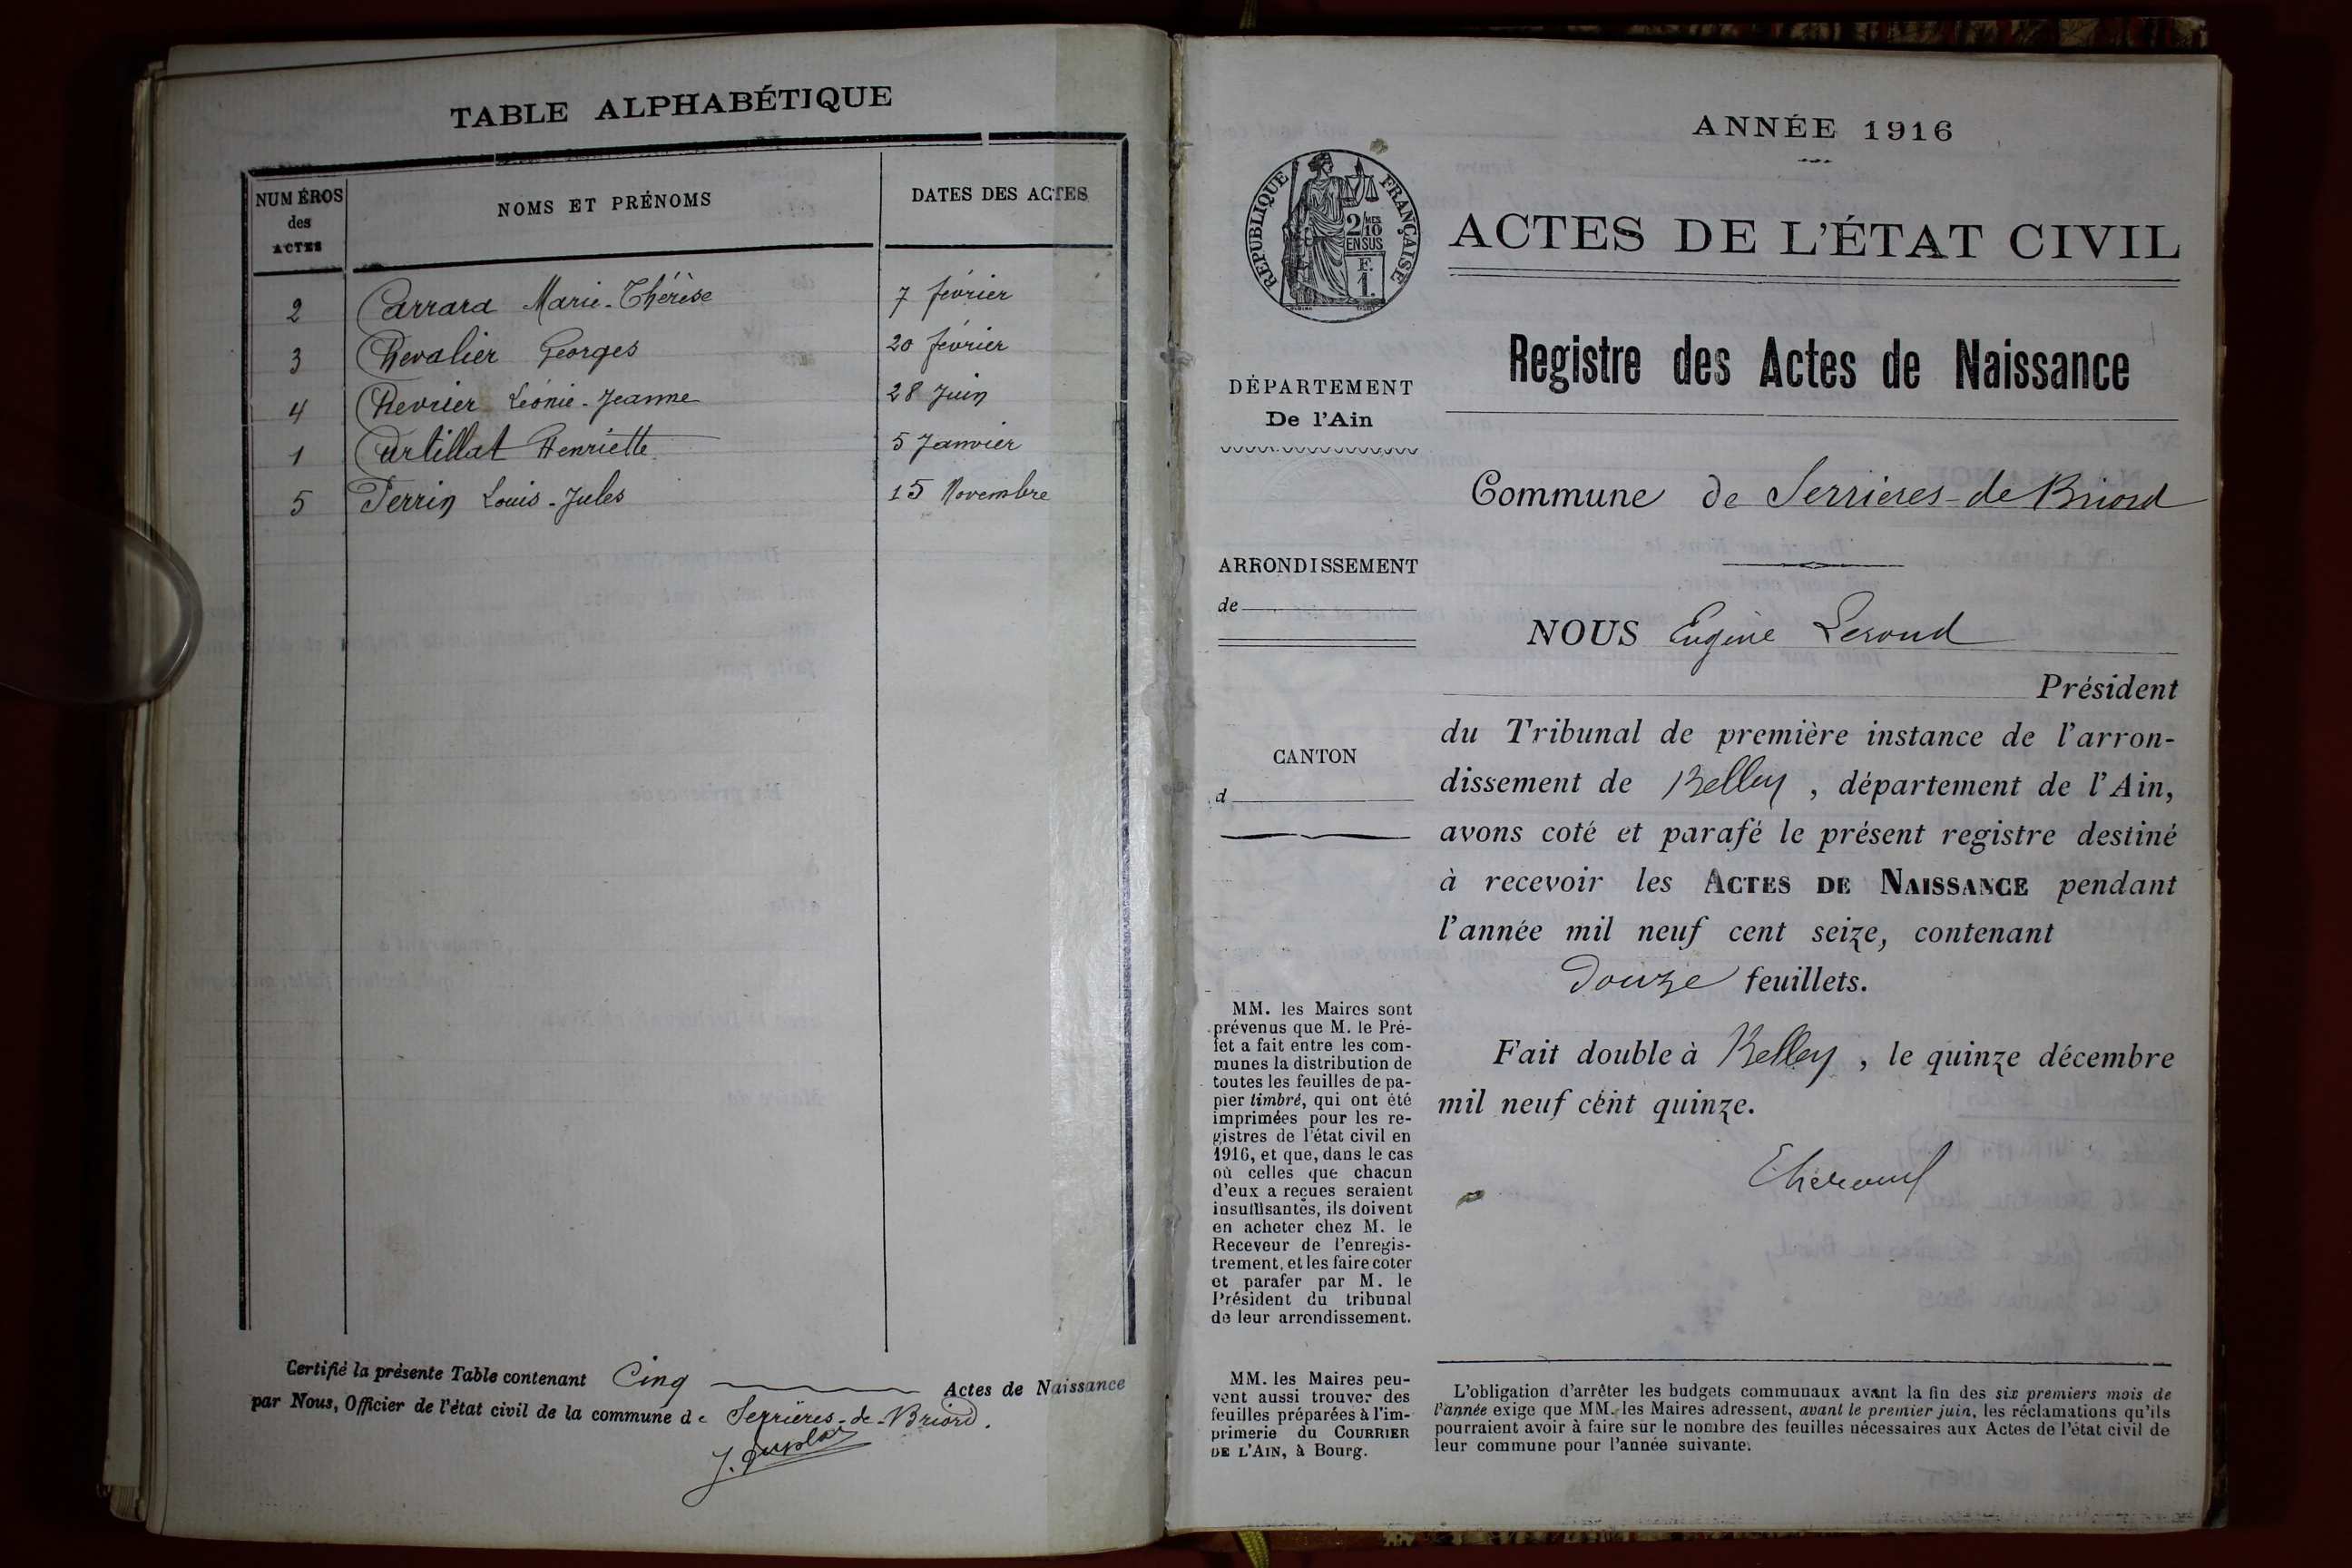 TABLE ALPHABÉTIQUE
NUMÉROS des ACTES
NOMS ET PRÉNOMS
DATES DES ACTES
2 Carrara Marie-Thérèse 7 février
3 Chevalier Georges 20 février
4 Chevrier Léonie-Jeanne 28 Juin
1 Curtillat Henriette 5 Janvier
5 Perrin Louis-Jules 15 Novembre
Certifié la présente Table contenant Cinq Actes de Naissance
par Nous, Officier de l'état civil de la commune de Serrières-de-Briord.
ANNÉE 1916
RÉPUBLIQUE FRANÇAISE
2/10 MES
EN SUS
F.
1.
ACTES DE L'ÉTAT CIVIL
Registre des Actes de Naissance
DÉPARTEMENT
De l'Ain
Commune de Serrieres-de Briord
ARRONDISSEMENT
de
NOUS Eugène
Président
du Tribunal de première instance de l'arron-
dissement de Belley, département de l'Ain,
avons coté et parafé le présent registre destiné
à recevoir les ACTES DE NAISSANCE pendant
l'année mil neuf cent seize, contenant
douze feuillets.
Fait double à Belley, le quinze décembre
mil neuf cent quinze.
CANTON
d
MM. les Maires sont
prévenus que M. le Pré-
fet a fait entre les com-
munes la distribution de
toutes les feuilles de pa-
pier timbré, qui ont été
imprimées pour les re-
gistres de l'état civil en
1916, et que, dans le cas
où celles que chacun
d'eux a reçues seraient
insuffisantes, ils doivent
en acheter chez M. le
Receveur de l'enregis-
trement, et les faire coter
et parafer par M. le
Président du tribunal
de leur arrondissement.
MM. les Maires peu-
vent aussi trouver des
feuilles préparées à l'im-
primerie du COURRIER
DE L'AIN, à Bourg.
L'obligation d'arrêter les budgets communaux avant la fin des six premiers mois de
l'année exige que MM. les Maires adressent, avant le premier juin, les réclamations qu'ils
pourraient avoir à faire sur le nombre des feuilles nécessaires aux Actes de l'état civil de
leur commune pour l'année suivante.